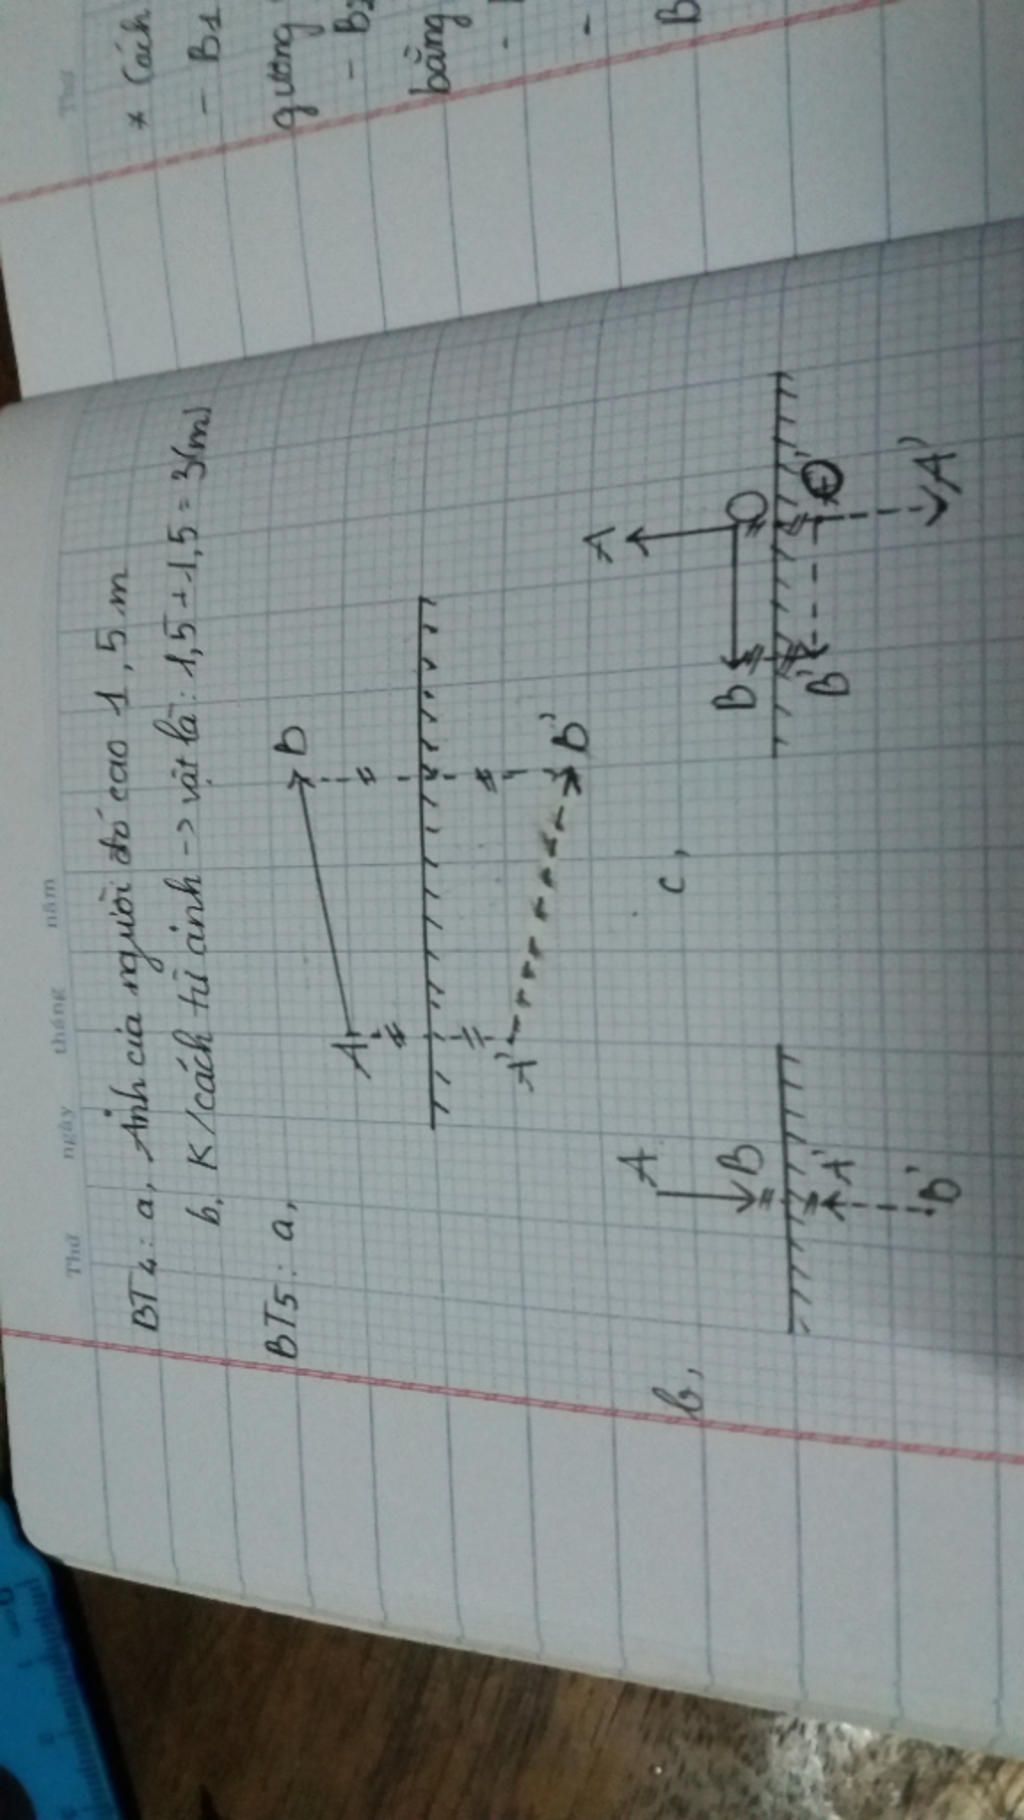 Thứ ngày tháng năm
BT4: a, Ảnh của người đó cao 1,5 m
b, K/cách từ ảnh -> vật là: 1,5 + 1,5 = 3(m)
BT5: a,
A B
A' B'
b,
A
B
A'
B'
c,
A
B O
B'
A'
Thứ
* Cách
- B1
gương
- B2
bằng
-
-
B